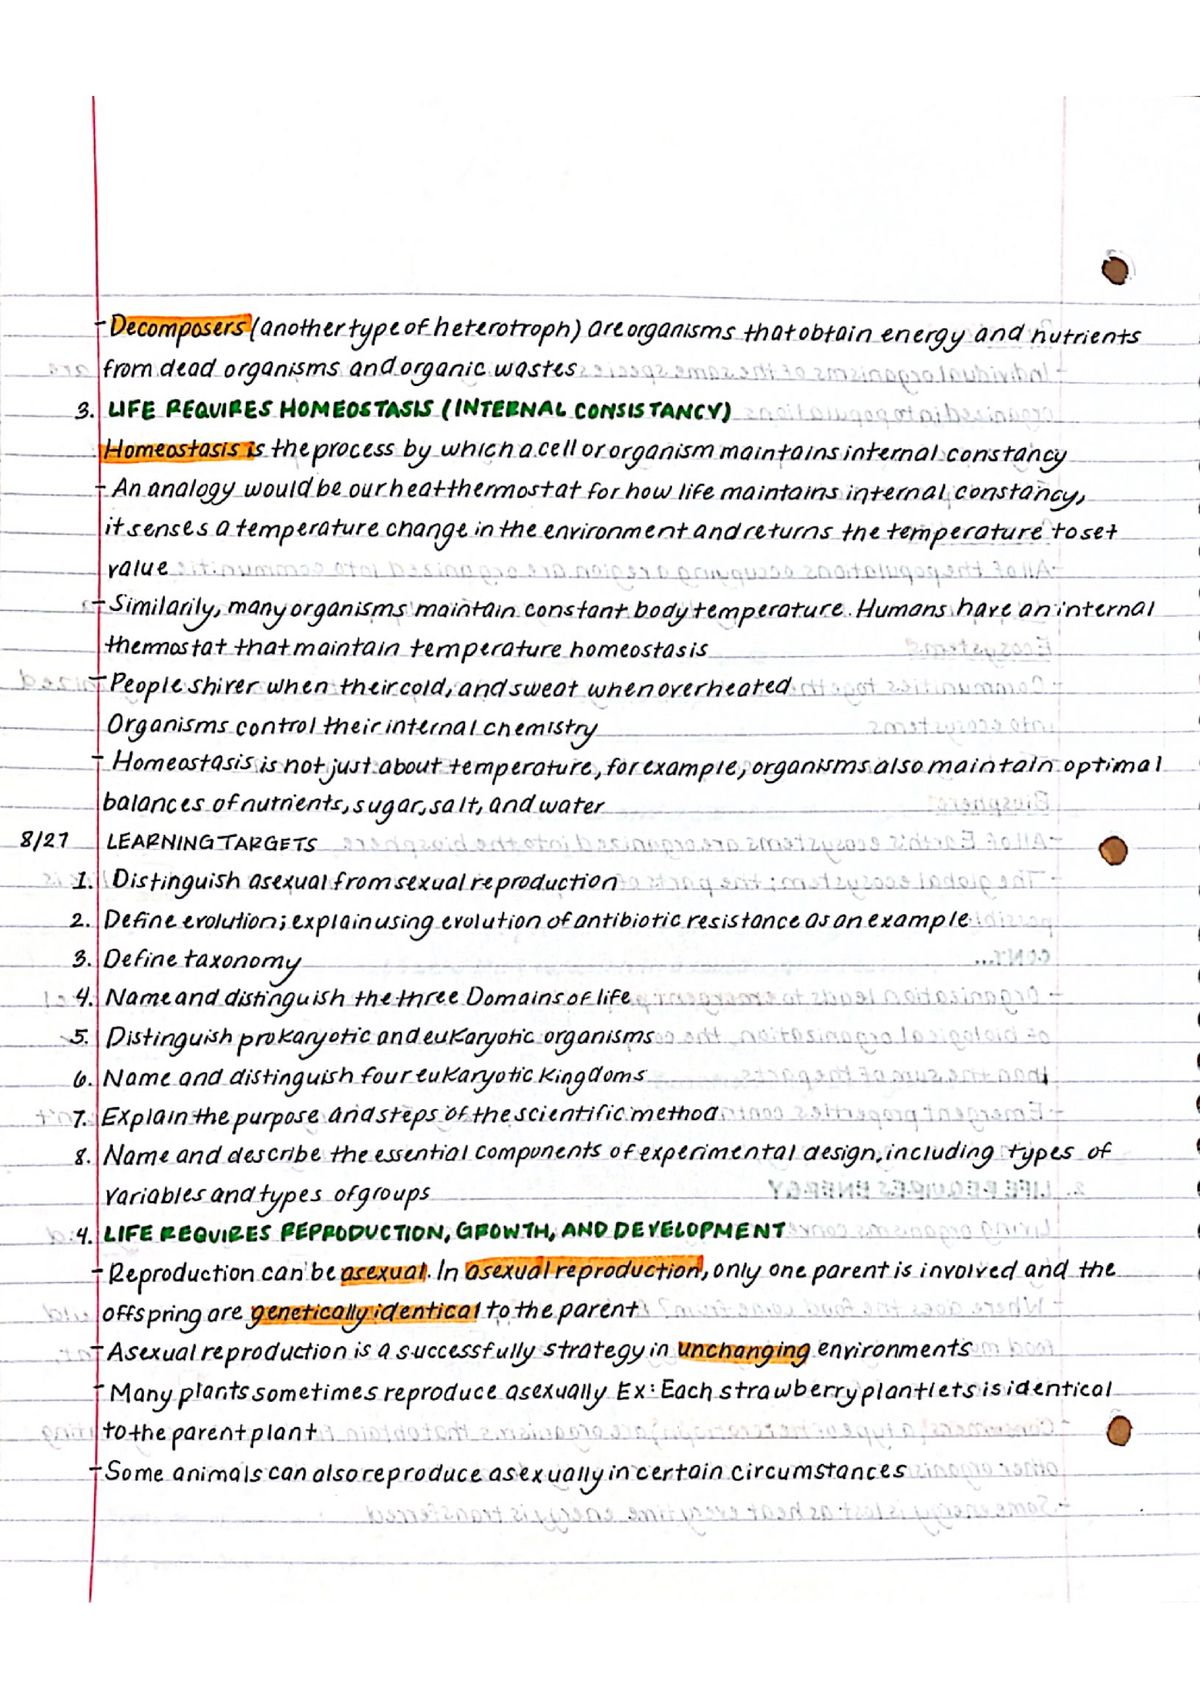 - Decomposers (another type of heterotroph) are organisms that obtain energy and nutrients
from dead organisms and organic wastes
3. LIFE REQUIRES HOMEOSTASIS (INTERNAL CONSISTANCY)
Homeostasis is the process by which a cell or organism maintains internal constancy
- An analogy would be our heat thermostat for how life maintains internal constancy,
it senses a temperature change in the environment and returns the temperature to set
value
- Similarily, many organisms maintain constant body temperature. Humans have an internal
thermostat that maintain temperature homeostasis
- People shiver when their cold, and sweat when overheated
Organisms control their internal chemistry
- Homeostasis is not just about temperature, for example, organisms also maintain optimal
balances of nutrients, sugar, salt, and water
8/27 LEARNING TARGETS
1. Distinguish asexual from sexual reproduction
2. Define evolution; explain using evolution of antibiotic resistance as an example
3. Define taxonomy
4. Name and distinguish the three Domains of life
5. Distinguish prokaryotic and eukaryotic organisms
6. Name and distinguish four eukaryotic kingdoms
7. Explain the purpose and steps of the scientific method
8. Name and describe the essential components of experimental design, including types of
variables and types of groups
4. LIFE REQUIRES REPRODUCTION, GROWTH, AND DEVELOPMENT
- Reproduction can be asexual. In asexual reproduction, only one parent is involved and the
offspring are genetically identical to the parent
- Asexual reproduction is a successfully strategy in unchanging environments
- Many plants sometimes reproduce asexually Ex: Each strawberry plantlets is identical
to the parent plant
- Some animals can also reproduce asexually in certain circumstances